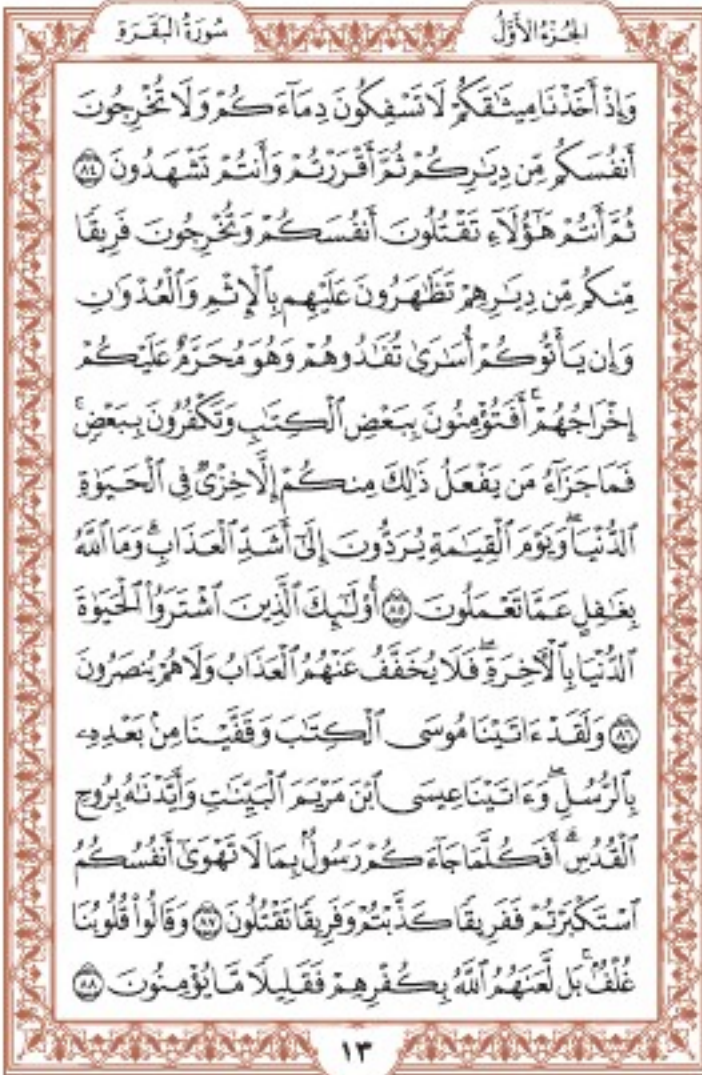 سُورَةُ البَقَرَةِ
الجُزْءُ الأَوَّلُ
وَإِذْ أَخَذْنَا مِيثَٰقَكُمْ لَا تَسْفِكُونَ دِمَآءَكُمْ وَلَا تُخْرِجُونَ
أَنفُسَكُم مِّن دِيَٰرِكُمْ ثُمَّ أَقْرَرْتُمْ وَأَنتُمْ تَشْهَدُونَ ٨٤
ثُمَّ أَنتُمْ هَٰٓؤُلَآءِ تَقْتُلُونَ أَنفُسَكُمْ وَتُخْرِجُونَ فَرِيقًا
مِّنكُم مِّن دِيَٰرِهِمْ تَظَٰهَرُونَ عَلَيْهِم بِٱلْإِثْمِ وَٱلْعُدْوَٰنِ
وَإِن يَأْتُوكُمْ أُسَٰرَىٰ تُفَٰدُوهُمْ وَهُوَ مُحَرَّمٌ عَلَيْكُمْ
إِخْرَاجُهُمْ ۚ أَفَتُؤْمِنُونَ بِبَعْضِ ٱلْكِتَٰبِ وَتَكْفُرُونَ بِبَعْضٍ ۚ
فَمَا جَزَآءُ مَن يَفْعَلُ ذَٰلِكَ مِنكُمْ إِلَّا خِزْىٌ فِى ٱلْحَيَوٰةِ
ٱلدُّنْيَا ۖ وَيَوْمَ ٱلْقِيَٰمَةِ يُرَدُّونَ إِلَىٰٓ أَشَدِّ ٱلْعَذَابِ ۗ وَمَا ٱللَّهُ
بِغَٰفِلٍ عَمَّا تَعْمَلُونَ ٨٥ أُو۟لَٰٓئِكَ ٱلَّذِينَ ٱشْتَرَوُا۟ ٱلْحَيَوٰةَ
ٱلدُّنْيَا بِٱلْءَاخِرَةِ ۖ فَلَا يُخَفَّفُ عَنْهُمُ ٱلْعَذَابُ وَلَا هُمْ يُنصَرُونَ
٨٦ وَلَقَدْ ءَاتَيْنَا مُوسَى ٱلْكِتَٰبَ وَقَفَّيْنَا مِنۢ بَعْدِهِۦ
بِٱلرُّسُلِ ۖ وَءَاتَيْنَا عِيسَى ٱبْنَ مَرْيَمَ ٱلْبَيِّنَٰتِ وَأَيَّدْنَٰهُ بِرُوحِ
ٱلْقُدُسِ ۗ أَفَكُلَّمَا جَآءَكُمْ رَسُولٌۢ بِمَا لَا تَهْوَىٰٓ أَنفُسُكُمُ
ٱسْتَكْبَرْتُمْ فَفَرِيقًا كَذَّبْتُمْ وَفَرِيقًا تَقْتُلُونَ ٨٧ وَقَالُوا۟ قُلُوبُنَا
غُلْفٌۢ ۚ بَل لَّعَنَهُمُ ٱللَّهُ بِكُفْرِهِمْ فَقَلِيلًا مَّا يُؤْمِنُونَ ٨٨
١٣